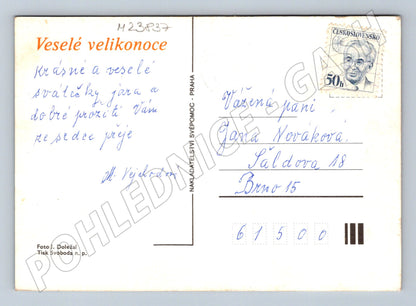 M23837
Veselé velikonoce
Krásné a veselé
svátečky jara a
dobré prožití Vám
ze srdce přeje
NAKLADATELSTVÍ SVÉPOMOC - PRAHA
ČESKOSLOVENSKO
50h
Vážená paní
Jana Novákova
Šaldova 18
Brno 15
61500
Foto J. Doležal
Tisk Svoboda n. p.
POHLEDNICE - GASH